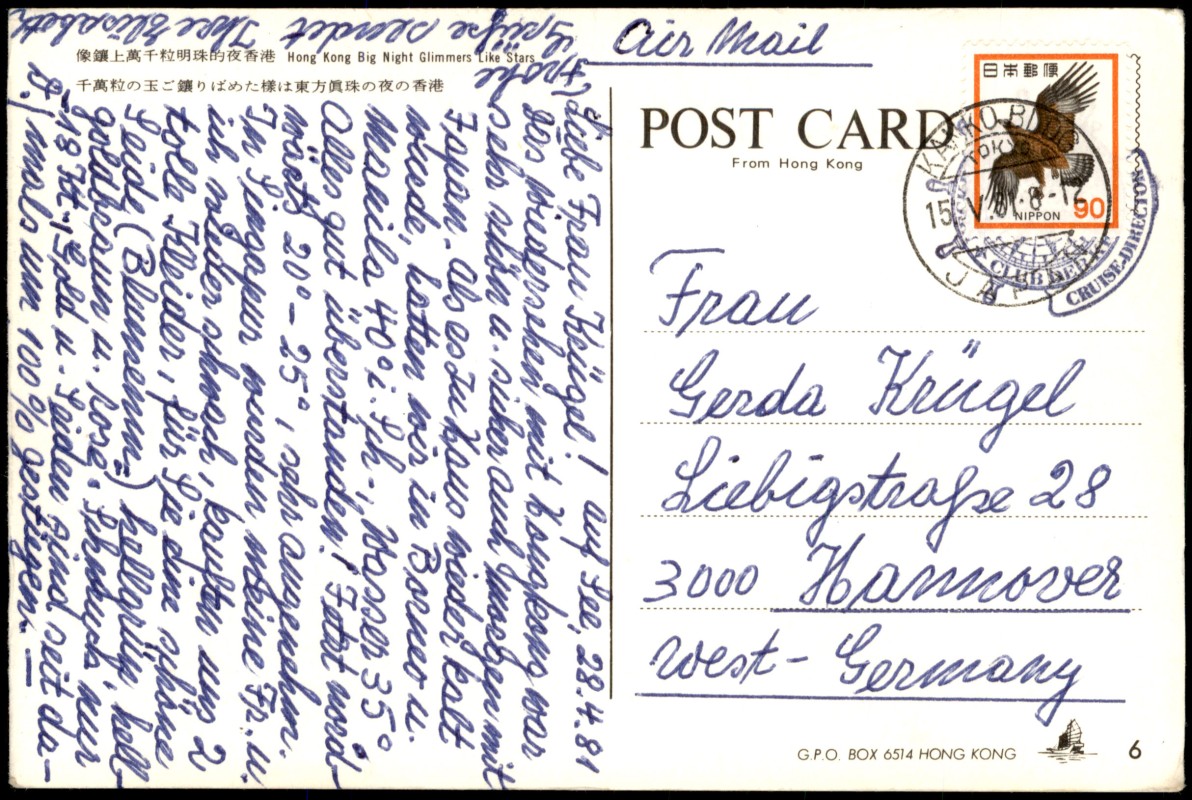 像鑲上萬千粒明珠的夜香港 Hong Kong Big Night Glimmers Like Stars
千萬粒の玉ご鑲りばめた樣は東方眞珠の夜の香港
Air Mail
POST CARD
From Hong Kong
日本郵便
NIPPON 90
KANKO BUN
TOKYO
15.V.81.8-12
JAPAN
CLUB
CRUISE-DIRECTOR
Frau
Gerda Krügel
Liebigstraße 28
3000 Hannover
West-Germany
G.P.O. BOX 6514 HONG KONG
6
auf See, 28.4.81
Liebe Frau Krügel!
Das Wiedersehen mit Hongkong war
sehr schön u. sicher auch morgen mit
Japan. Als es zu Haus wieder kalt
wurde, hatten wir in Borneo u.
Manila 40° i. Sch-, Wasser 35°
Alles gut überstanden! Jetzt nord-
wärts 20°-25°, sehr angenehm.
In Singapur wurden meine Fr. u.
ich wieder schwach, kauften uns 2
tolle Kleider, für Sie eine schöne
Seide (Blumenm=) hellgrün, hell-
goldbraun u. rosé. Schmuck, nur
-18 Kt-, Gold u. Seiden sind seit da-
mals um 100% gestiegen. —
Frohe
Grüße sendet Ihre Elisabeth